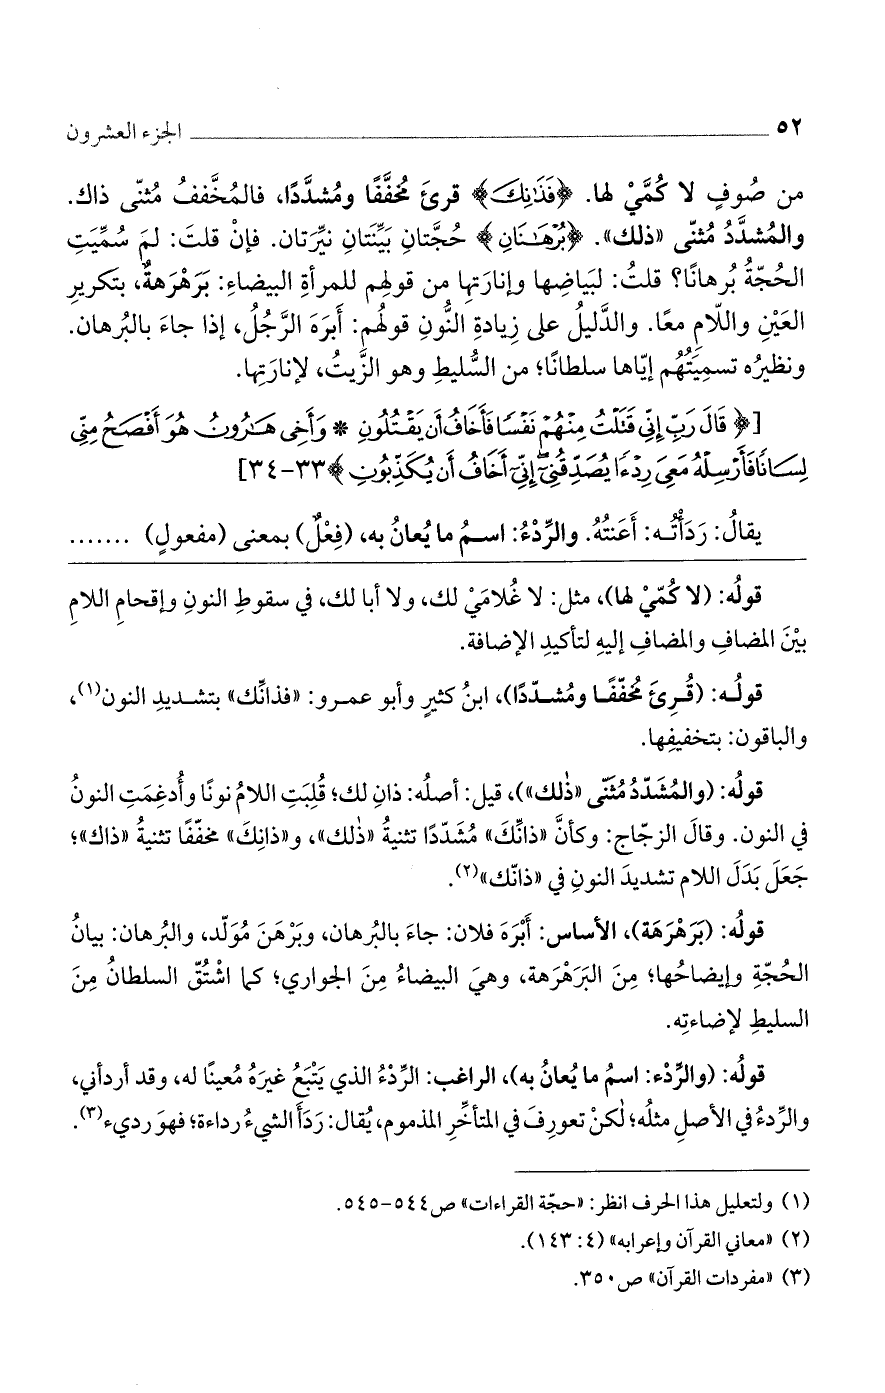 ٥٢ الجزء العشرون
من صُوفٍ لا كُمَّيْ لها. ﴿فَذَٰنِكَ﴾ قرئَ مُخفَّفًا ومُشدَّدًا، فالمُخَّففُ مُثنّى ذاك.
والمُشدَّدُ مُثنّى «ذلك». ﴿بُرْهَـٰنَانِ﴾ حُجَّتانِ بَيِّنَتانِ نيِّرَتان. فإنْ قلتَ: لمَ سُمِّيَتِ
الحُجّةُ بُرهانًا؟ قلتُ: لبَياضِها وإنارَتِها من قولِهم للمرأةِ البيضاءِ: بَرَهْرَهةٌ، بتكريرِ
العَيْنِ واللّامِ معًا. والدَّليلُ على زِيادةِ النُّونِ قولُهم: أبرَهَ الرَّجُلُ، إذا جاءَ بالبُرهان.
ونظيرُه تسمِيَتُهُم إيّاها سلطانًا؛ من السُّليطِ وهو الزَّيتُ، لإنارَتِها.
[﴿قَالَ رَبِّ إِنِّى قَتَلْتُ مِنْهُمْ نَفْسًا فَأَخَافُ أَن يَقْتُلُونِ * وَأَخِى هَـٰرُونُ هُوَ أَفْصَحُ مِنِّى
لِسَانًا فَأَرْسِلْهُ مَعِىَ رِدْءًا يُصَدِّقُنِىٓ إِنِّىٓ أَخَافُ أَن يُكَذِّبُونِ﴾ ٣٣-٣٤]
يقالُ: رَدَأْتُـه: أعَنتُهُ. والرِّدْءُ: اسـمُ ما يُعانُ به، (فِعْلٌ) بمعنى (مفعولٍ) .......
قولُه: (لا كُمّيْ لها)، مثل: لا غُلامَيْ لك، ولا أبا لك، في سقوطِ النونِ وإقحامِ اللامِ
بيْنَ المضافِ والمضافِ إليهِ لتأكيدِ الإضافة.
قولُـه: (قُـرِئَ مُخفّفًـا ومُشـدّدًا)، ابنُ كثيرٍ وأبو عمـرو: «فذانِّك» بتشـديدِ النون(١)،
والباقون: بتخفيفِها.
قولُه: (والمُشَدّدُ مُثَنّى «ذٰلك»)، قيل: أصلُه: ذانِ لك؛ قُلِبَتِ اللامُ نونًا وأُدغِمَتِ النونُ
في النون. وقالَ الزجّاج: وكأنَّ «ذانِّكَ» مُشَدّدًا تثنيةُ «ذٰلك»، و«ذانِكَ» مخفّفًا تثنيةُ «ذاك»؛
جَعَلَ بَدَلَ اللام تشديدَ النونِ في «ذانّك»(٢).
قولُه: (بَرَهْرَهَة)، الأساس: أَبْرَهَ فلان: جاءَ بالبُرهان، وبَرْهَنَ مُوَلّد، والبُرهان: بيانُ
الحُجّةِ وإيضاحُها؛ مِنَ البَرَهْرَهة، وهيَ البيضاءُ مِنَ الجواري؛ كما اشْتُقّ السلطانُ مِنَ
السليطِ لإضاءتِه.
قولُه: (والرِّدْء: اسمُ ما يُعانُ به)، الراغب: الرِّدْءُ الذي يَتْبَعُ غيرَهُ مُعينًا له، وقد أردأني،
والرِّدءُ في الأصلِ مثلُه؛ لٰكنْ تعورِفَ في المتأخِّرِ المذموم، يُقال: رَدَأَ الشيءُ رداءة؛ فهوَ رديء(٣).
(١) ولتعليل هذا الحرف انظر: «حجّة القراءات» ص٥٤٤-٥٤٥.
(٢) «معاني القرآن وإعرابه» (٤: ١٤٣).
(٣) «مفردات القرآن» ص٣٥٠.